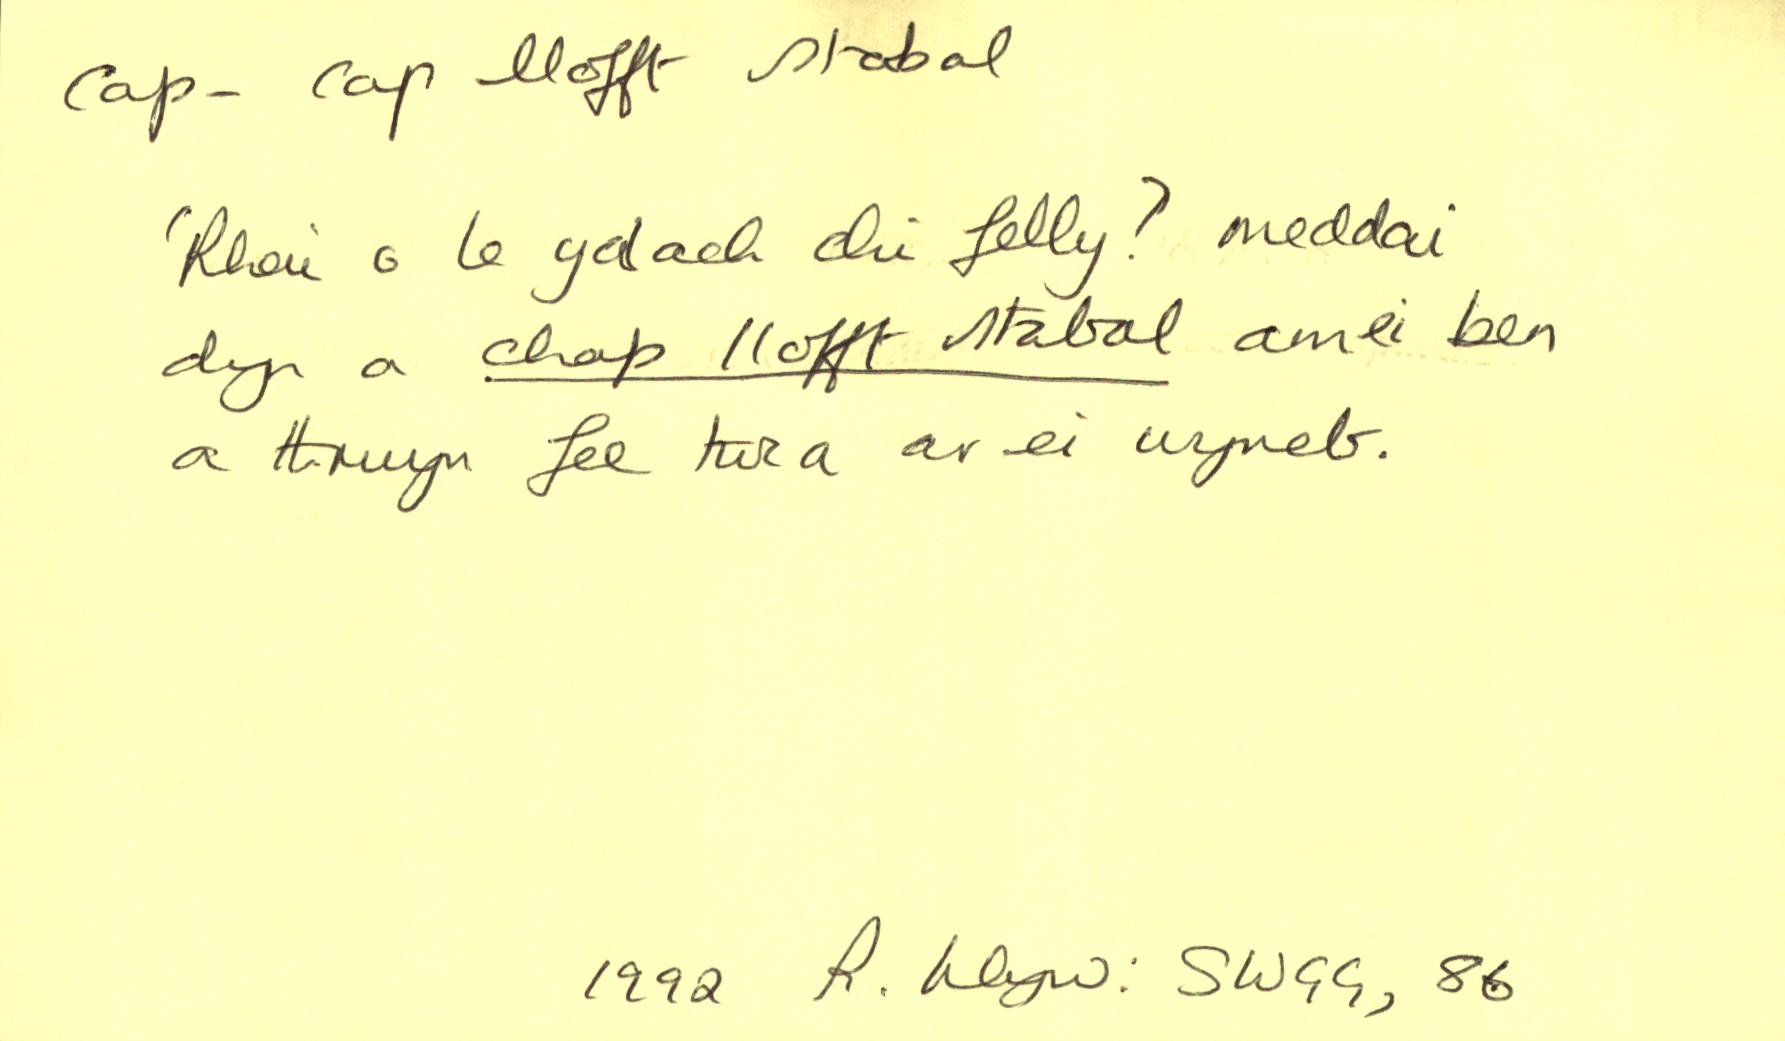 Cap - Cap llofft stabal
'Rhai o le ydach chi felly? meddai
dyn a chap llofft stabal am ei ben
a thrwyn fel twca ar ei wyneb.
1992 R. Wyn: SWGG, 86